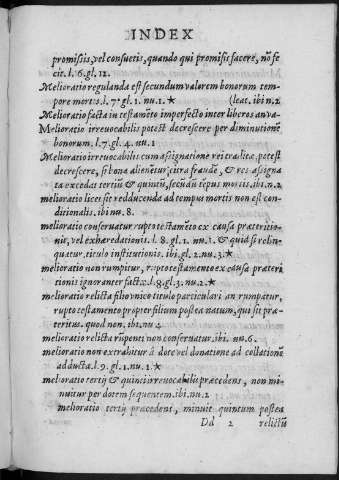 INDEX
promissis, vel consuetis, quando qui promisit facere, nõ fe
cit. l. 6. gl. 12.
Melioratio regulanda est secundum valorem bonorum tem
pore mortis. l. 7. gl. 1. nu. 1. ★ (leat. ibi n. 2
Melioratio facta in testamẽto imperfecto inter liberos an va-
Melioratio irrevocabilis potest decrescere per diminutionẽ
bonorum. l. 7. gl. 4. nu. 1
Melioratio irrevocabilis cum assignatione rei tradita, potest
decrescere, si bona alienẽtur, citra fraudẽ, & res assigna
ta excedat tertiũ & quintũ, secũdũ tẽpus mortis. ibi. n. 2
melioratio licet sit redducenda ad tempus mortis non est con-
ditionalis. ibi nu. 8.
melioratio conservatur rupto testamẽto ex causa præteritio-
nis, vel exharedationis. l. 8. gl. 1. nu. 1. & quid si relin-
quatur, titulo institutionis. ibi gl. 2. nu. 3. ★
melioratio non rumpitur, rupto testamento ex causa præteri
tionis ignoranter factæ. l. 8. gl. 3. nu. 2. ★
melioratio relicta filio vnico titulo particulari an rumpatur,
rupto testamento propter filium postea natum, qui sit præ-
teritus. quod non. ibi. nu 4
melioratio relicta nepoti non conservatur. ibi nu. 6.
melioratio non extrahitur à dote vel donatione ad collationẽ
adducta. l. 9. gl. 1. nu. 1. ★
melioratio tertij & quinti irrevocabilis præcedens, non mi-
nuitur per dotem sequentem. ibi. nu. 2
melioratio tertij præcedens, minuit quintum postea
Dd 2 relictũ